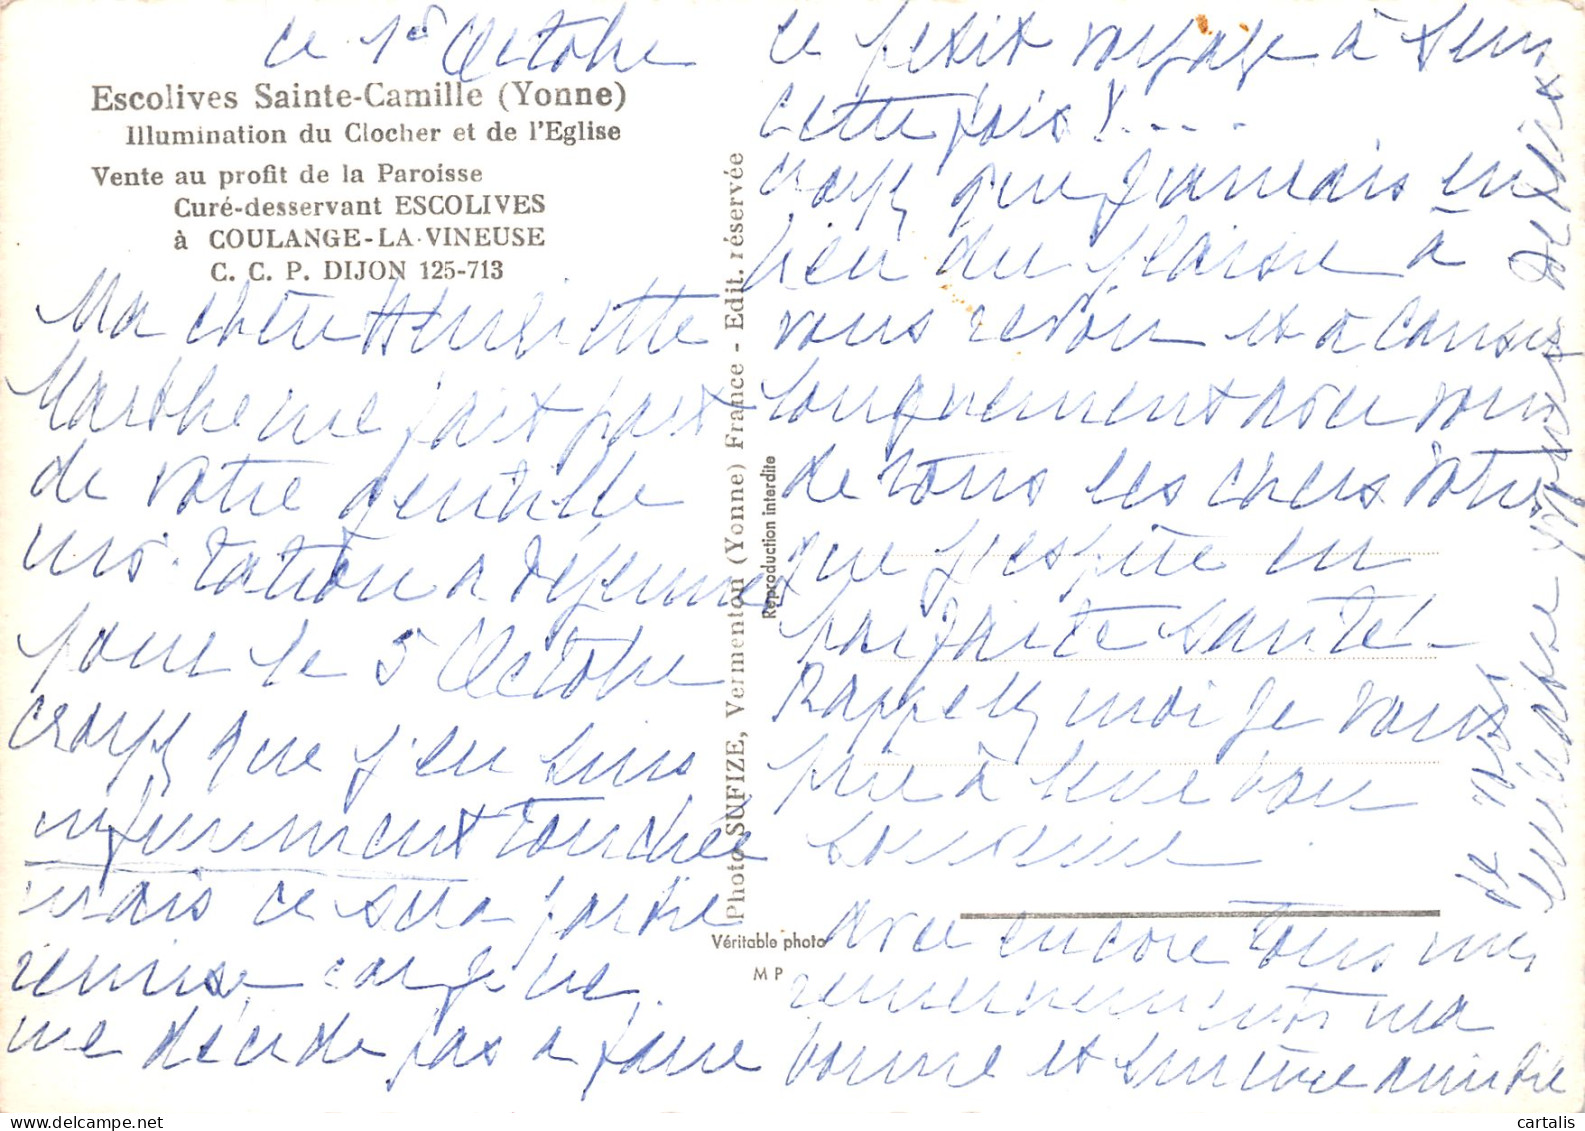 ce 1er Octobre
Escolives Sainte-Camille (Yonne)
Illumination du Clocher et de l'Eglise
Vente au profit de la Paroisse
Curé-desservant ESCOLIVES
à COULANGE-LA-VINEUSE
C. C. P. DIJON 125-713
Ma chère Henriette
Marthe me fait part
de votre gentille
invitation a déjeuner
pour le 5 Octobre
croyez que j'en suis
infiniment touchée
mais ce sera partie
remise car je ne
me décide pas a faire
Photo SUFIZE, Vermenton (Yonne) France - Edit. réservée
Reproduction interdite
Véritable photo
M P
ce petit voyage à Sens
cette fois ! ....
croyez que j'aurais eu
bien du plaisir à
vous revoir et à causer
longuement avec vous
de tous les chers vôtres
que j'espère en
parfaite santé -
Rappelez moi je vous
prie à leur bon
souvenir.
Avec encore tous mes
remerciements ma
bonne et sincère amitié
et vous
embrasse